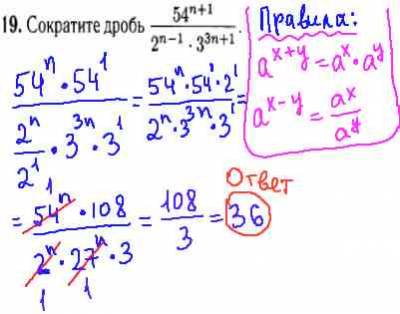 19. Сократите дробь 54^{n+1} / (2^{n-1} · 3^{3n+1}).
Правила:
a^{x+y} = a^x · a^y
a^{x-y} = a^x / a^y
(54^n · 54^1) / ((2^n / 2^1) · 3^{3n} · 3^1) = (54^n · 54^1 · 2^1) / (2^n · 3^{3n} · 3^1) =
= (54^n · 108) / (2^n · 27^n · 3) = 108 / 3 = 36
1
1 1
Ответ